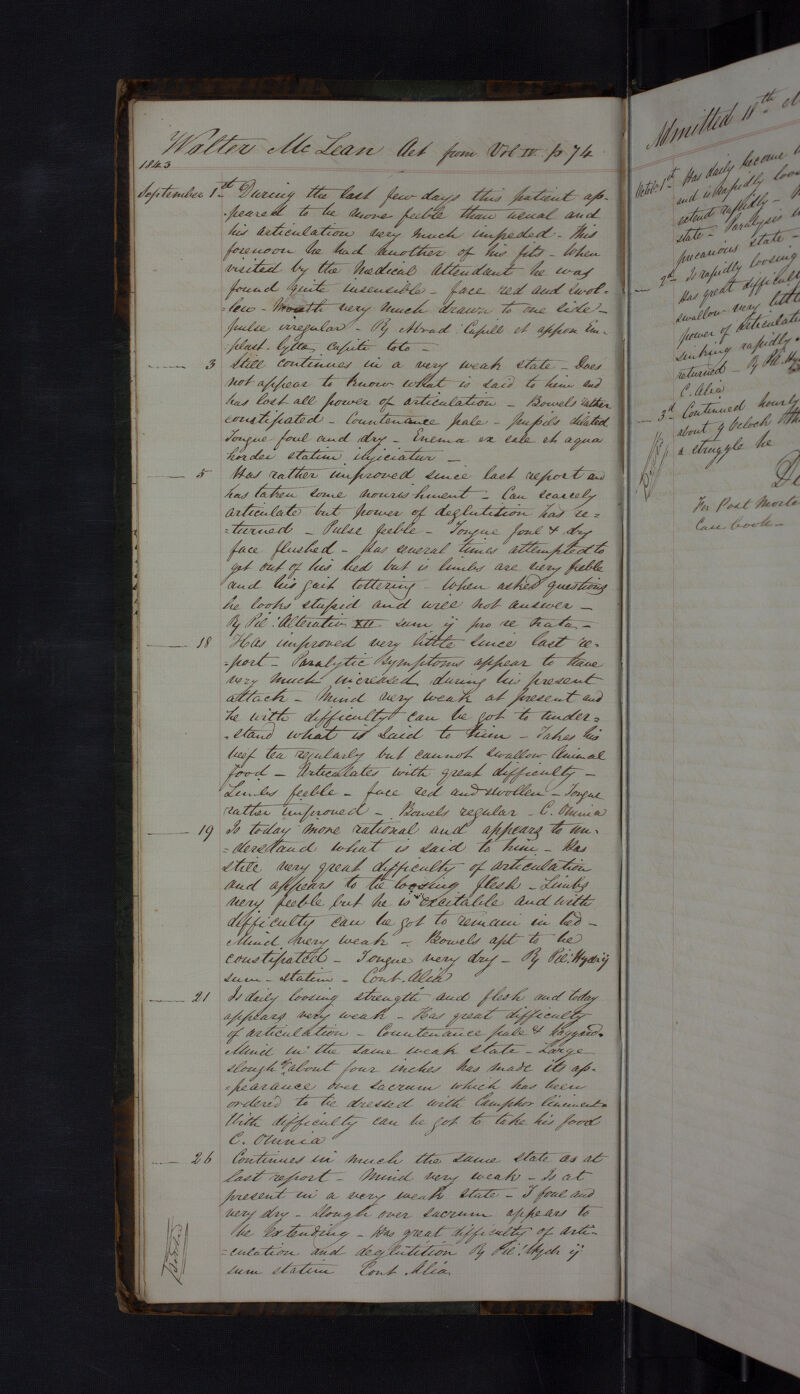 Walter McLean Act from Vol IV p 74
1843
September 1st During the last few days this patient ap-
-peared to be more feeble than usual and
his articulation very much impeded - This
forenoon he had another of his fits - When
visited by the Medical Attendant he was
found quite insensible - face red and swol-
-len - Mouth very much drawn to one side -
pulse irregular - Rx Abrad. Capill et appon Em-
plast. Lyttæ capite toto -
3 Still continues in a very weak state - Does
not appear to know what is said to him and
has lost all power of articulation - Bowels rather
constipated - Countenance pale - pupils dilated
Tongue foul and dry - Enema ex sale et aqua
hordei statim injiciatur -
5 Has rather improved since last report and
has taken some nourishment - Can scarcely
articulate but power of deglutition has re-
-turned - Pulse feeble - Tongue foul & dry
face flushed - Has several times attempted to
get out of his bed but is limbs are very feeble
and his gait tottering - When asked questions
he looks stupid and will not answer -
Rx Pil: Alterativ XII sum ij pro re nata -
18 Has improved very little since last re-
-port - Paralytic symptoms appear to have
very much increased during his present
attack - Mind very weak at present and
he with difficulty can be got to under-
-stand what is said to him - Takes his
beef tea regularly but cannot swallow Animal
food - Articulates with great difficulty -
Limbs feeble - face red and swollen - Tongue
rather improved - Bowels regular - C. Omnia
19 Is today more rational and appears to un-
-derstand what is said to him - Has
still very great difficulty of articulation
and appears to be loosing flesh - Limbs
very feeble but he is excitable and with
difficulty can be got to remain in bed -
Mind very weak - Bowels apt to be
constipated - Tongue very dry - Rx Pil: Hydr ij
sum - statim - Cont. Alia
21 Is daily loosing strength and flesh and today
appears very weak - Has great difficulty
of articulation - Countenance pale & haggard -
Mind in the same weak state - Large
slough of about four inches has made its ap-
-pearance over sacrum which has been
ordered to be dressed with Camphor liniment -
With difficulty can be got to take his food
C. Omnia
26 Continues in much the same state as at
last report - Mind very weak - Is at
present in a very weak state - T foul and
very dry - slough over sacrum appears to
be extending - Has great difficulty of arti-
-culation and deglutition Rx Pil: Hydr ij
sum statim Cont Alia
Admitted 18th
Octob. 1st Has daily become
and is rapidly loos
extend rapidly -
state - Paralysis
precarious state -
2d Is rapidly loosing
Has great difficult
swallow very littl
power of articulati
sinking rapidly
returned - Rx Pil: Hy
C. Alia
3d Continued hourly
about 9 oclock
a struggle he
For Post Morte
Case book -